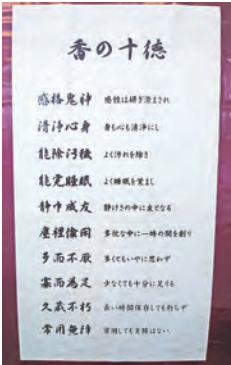 香の十徳
感格鬼神 感性は研ぎ澄まされ
清浄心身 身も心も清浄にし
能除汚穢 よく汚れを除き
能覚睡眠 よく睡眠を覚まし
静中成友 静けさの中に友となる
塵裡偸閑 多忙な中に一時の閑を創り
多而不厭 多くともいやに思わず
寡而為足 少なくても十分に足りる
久蔵不朽 長い時間保存しても朽ちず
常用無障 常用しても支障はない